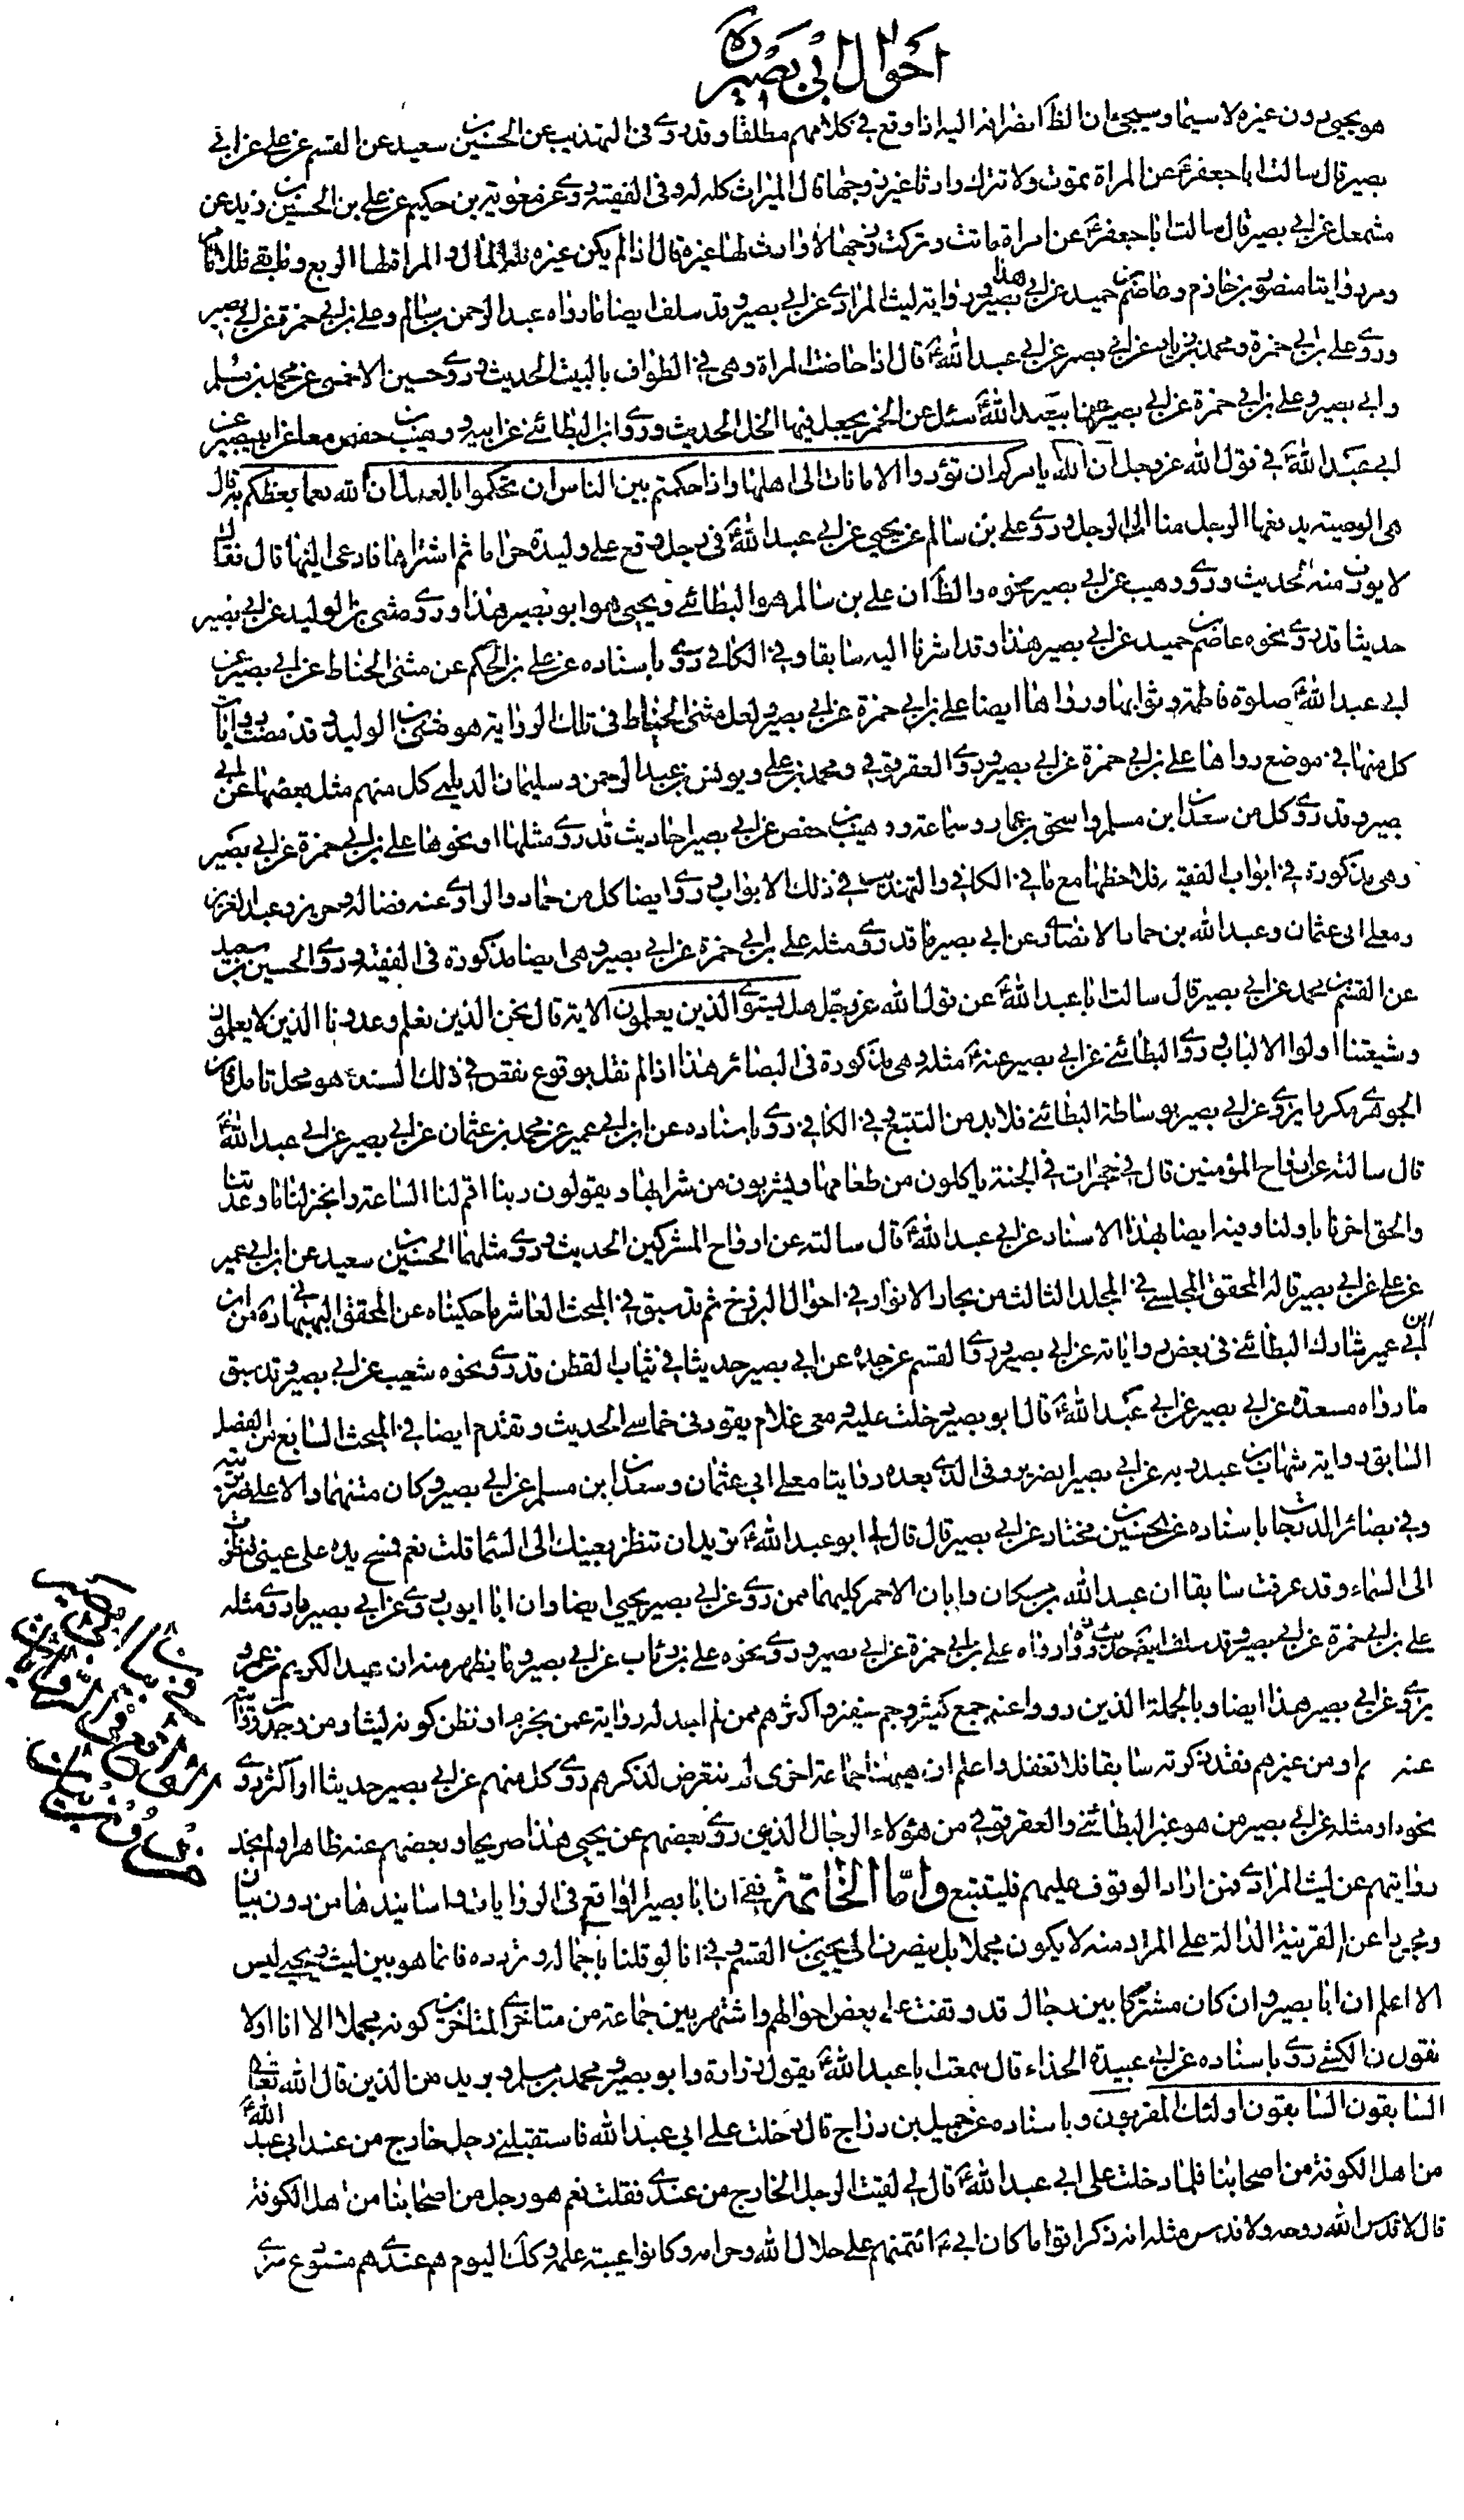 احوال ابی بصیر ره
هو یحیی دون غیره لا سیما و سیجئ ان الظ انصرافه الیه اذا وقع فی کلامهم مطلقا و قد روی فی التهذیب عن الحسین بن سعید عن القسم عن علی عن ابی
بصیر قال سالت ابا جعفر ع عن المراة تموت ولا تترك وارثا غیر زوجها قال المیراث کله له و فی الفقیه روی عن معویة بن حکیم عن علی بن الحسن بن زید عن
مشمعل عن ابی بصیر قال سالت ابا جعفر ع عن امراة ماتت و ترکت زوجها لا وارث لها غیره قال اذا لم یکن غیره فله المال و المراة لها الربع و ما بقی فللامام
و مر روایتا منصور بن حازم و عاصم بن حمید عن ابی بصیر هذا و روایة لیث المرادی عن ابی بصیر و قد سلف ایضا ما رواه عبد الرحمن بن سالم و علی بن ابی حمزة عن ابی بصیر
و روی علی بن ابی حمزة و محمد بن عن ابی بصیر عن ابی عبد الله ع قال اذا حاضت المراة و هی فی الطواف بالبیت الحدیث و روی حسین الاحمسی عن محمد بن مسلم
و ابی بصیر و علی بن ابی حمزة عن ابی بصیر عن ابی عبد الله ع سئل عن الخمر یجعل فیها الخل الحدیث و روی ابن البطائنی عن ابیه و وهیب بن حفص معا عن ابی بصیر عن
ابی عبد الله ع فی قول الله عز و جل ان الله یامرکم ان تؤدوا الامانات الی اهلها و اذا حکمتم بین الناس ان تحکموا بالعدل ان الله نعما یعظکم به قال
هی الوصیة یدفعها الرجل منا الی الرجل و روی علی بن سالم عن یحیی عن ابی عبد الله ع فی رجل وقع علی ولیدة حراما ثم اشتراها فادعی ابنها قال فقال
لا یورث منه الحدیث و روی وهیب عن ابی بصیر نحوه و الظ ان علی بن سالم هو البطائنی و یحیی هو ابو بصیر هذا و روی مثنی بن الولید عن ابی بصیر
حدیثا قد روی نحوه عاصم بن حمید عن ابی بصیر هذا و قد اشرنا الیه سابقا و فی الکافی روی باسناده عن علی بن الحکم عن مثنی الحناط عن ابی بصیر عن
ابی عبد الله ع صلوة فاطمة و ثوابها و رواها ایضا علی بن ابی حمزة عن ابی بصیر و لعل مثنی الحناط فی تلك الروایة هو مثنی بن الولید و قد مضت روایات
کل منها فی موضع رواها علی بن ابی حمزة عن ابی بصیر و روی العقرقوفی و محمد بن علی و یونس بن عبد الرحمن و سلیمان الدیلمی کل منهم مثل بعضها عن ابی
بصیر و قد روی کل من سعدان بن مسلم و اسحق بن عمار و سماعة و وهیب بن حفص عن ابی بصیر احادیث قد روی مثلها او نحوها علی بن ابی حمزة عن ابی بصیر
و هی مذکورة فی ابواب الفقیه فلاحظها مع ما فی الکافی و التهذیب فی ذلك الابواب و روی ایضا کل من حماد و الراوی عنه فضالة و حریز و عبد العزیز
و معلی ابی عثمان و عبد الله بن حماد الانصاری عن ابی بصیر ما قد روی مثله علی بن ابی حمزة عن ابی بصیر و هی ایضا مذکورة فی الفقیه و روی الحسین بن سعید
عن القسم بن محمد عن ابی بصیر قال سالت ابا عبد الله ع عن قول الله عز و جل هل یستوی الذین یعلمون الایة قال نحن الذین نعلم و عدونا الذین لا یعلمون
و شیعتنا اولوا الالباب و روی البطائنی عن ابی بصیر عنه ع مثله و هی مذکورة فی البصائر هذا اذا لم نقل بوقوع نقص فی ذلك السند و هو محل تامل فان
الجوهری مکررا یروی عن ابی بصیر بوساطة البطائنی فلا بد من التتبع و فی الکافی روی باسناده عن ابن ابی عمیر عن محمد بن عثمان عن ابی بصیر عن ابی عبد الله ع
قال سالته عن ارواح المؤمنین قال فی حجرات فی الجنة یاکلون من طعامها و یشربون من شرابها و یقولون ربنا اقم لنا الساعة و انجز لنا ما وعدتنا
و الحق اخرنا باولنا و فیه ایضا بهذا الاسناد عن ابی عبد الله ع قال سالته عن ارواح المشرکین الحدیث و روی مثلهما الحسین بن سعید عن ابن ابی عمیر
عن علی عن ابی بصیر قاله المحقق المجلسی فی المجلد الثالث من بحار الانوار فی احوال البرزخ ثم قد سبق فی المبحث العاشر ما حکیناه عن المحقق البهبهانی ره من ان
ابن ابی عمیر شارك البطائنی فی بعض روایاته عن ابی بصیر و روی القسم عن جده عن ابی بصیر حدیثا فی ثیاب القطن قد روی نحوه شعیب عن ابی بصیر و قد سبق
ما رواه مسعدة عن ابی بصیر عن ابی عبد الله ع قال ابو بصیر دخلت علیه و معی غلام یقودنی خماسی الحدیث و تقدم ایضا فی المبحث السابع من الفصل
السابق روایة شهاب بن عبد ربه عن ابی بصیر الضریر و فی الذی بعده روایتا معلی ابی عثمان و سعدان بن مسلم عن ابی بصیر و کان متنهما دالا علی ضریریته
و فی بصائر الدرجات باسناده عن الحسین بن مختار عن ابی بصیر قال قال لی ابو عبد الله ع ترید ان تنظر بعینك الی السماء قلت نعم فمسح یده علی عینی فنظرت
الی السماء و قد عرفت سابقا ان عبد الله بن مسکان و ابان الاحمر کلیهما ممن روی عن ابی بصیر یحیی ایضا و ان ابا ایوب روی عن ابی بصیر ما روی مثله
علی بن ابی حمزة عن ابی بصیر و قد سلف ایضا حدیث رواه علی بن ابی حمزة عن ابی بصیر و روی نحوه علی بن رئاب عن ابی بصیر و ما یظهر منه ان عبد الکریم بن عمرو
یروی عن ابی بصیر هذا ایضا و بالجملة الذین رووا عنه جمع کثیر و جم غفیر و اکثرهم ممن لم اجد له روایة عمن یجزم او نظن کونه لیثا و من وجدت روایته
عنه ره و من غیرهم فقد ذکرته سابقا فلا تغفل و اعلم ان هیهنا جماعة اخری لم نتعرض لذکرهم روی کل منهم عن ابی بصیر حدیثا او اکثر روی
نحوه او مثله عن ابی بصیر من هو غیر البطائنی و العقرقوفی من هؤلاء الرجال الذین روی بعضهم عن یحیی هذا صریحا و بعضهم عنه ظاهرا و لم یجد
روایتهم عن لیث المرادی فمن اراد الوقوف علیهم فلیتتبع و امّا الخاتمة ففی ان ابا بصیر الواقع فی الروایات و اسانیدها من دون بیان
و مجردا عن القرینة الدالة علی المراد منه لا یکون مجملا بل ینصرف الی یحیی بن القسم و فی انا لو قلنا باجماله و تردده فانما هو بین لیث و یحیی لیس
الا اعلم ان ابا بصیر و ان کان مشترکا بین رجال قد وقفت علی بعض احوالهم و اشتهر بین جماعة من متاخری المتاخرین کونه مجملا الا انا اولا
نقول ان الکشی روی باسناده عن ابی عبیدة الحذاء قال سمعت ابا عبد الله ع یقول زرارة و ابو بصیر و محمد بن مسلم و برید من الذین قال الله تعالی
السابقون السابقون اولئك المقربون و باسناده عن جمیل بن دراج قال دخلت علی ابی عبد الله فاستقبلنی رجل خارج من عند ابی عبد الله ع
من اهل الکوفة من اصحابنا فلما دخلت علی ابی عبد الله ع قال لی لقیت الرجل الخارج من عندی فقلت نعم هو رجل من اصحابنا من اهل الکوفة
قال لا قدس الله روحه و لا قدس مثله انه ذکر اقواما کان ابی ع ائتمنهم علی حلال الله و حرامه و کانوا عیبة علمه و کك الیوم هم عندی هم مستودع سری